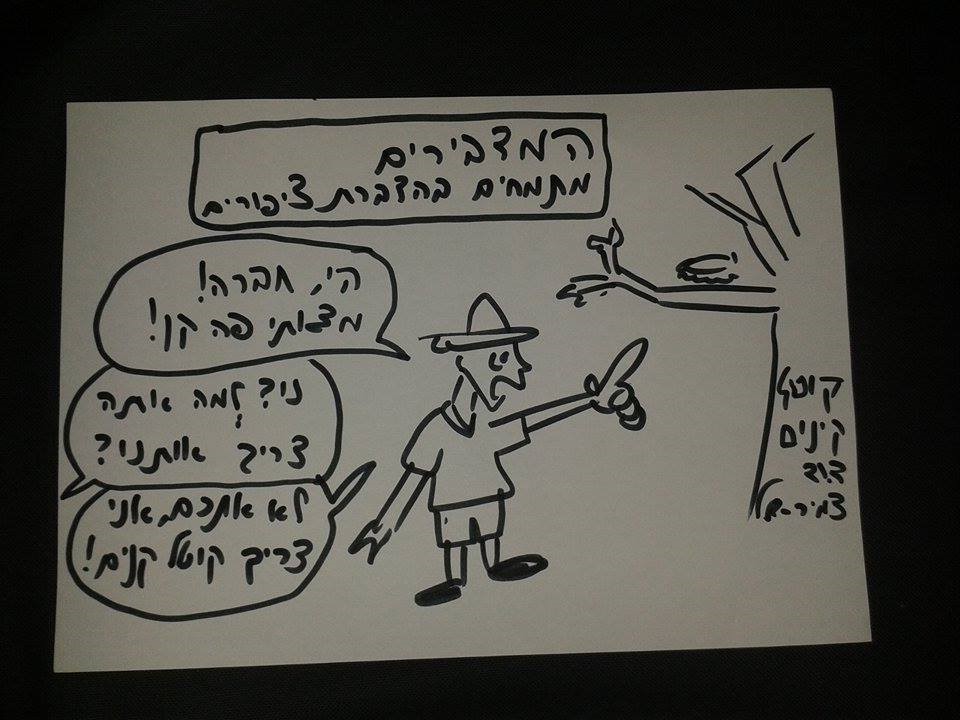 המדבירים
מתמחים בהדברת ציפורים
היי, חברה!
מצאתי פה קן!
נו? למה אתה
צריך אותנו?
לא אתכם, אני
צריך קוטל קנים!
קוטל
קינים
דוד